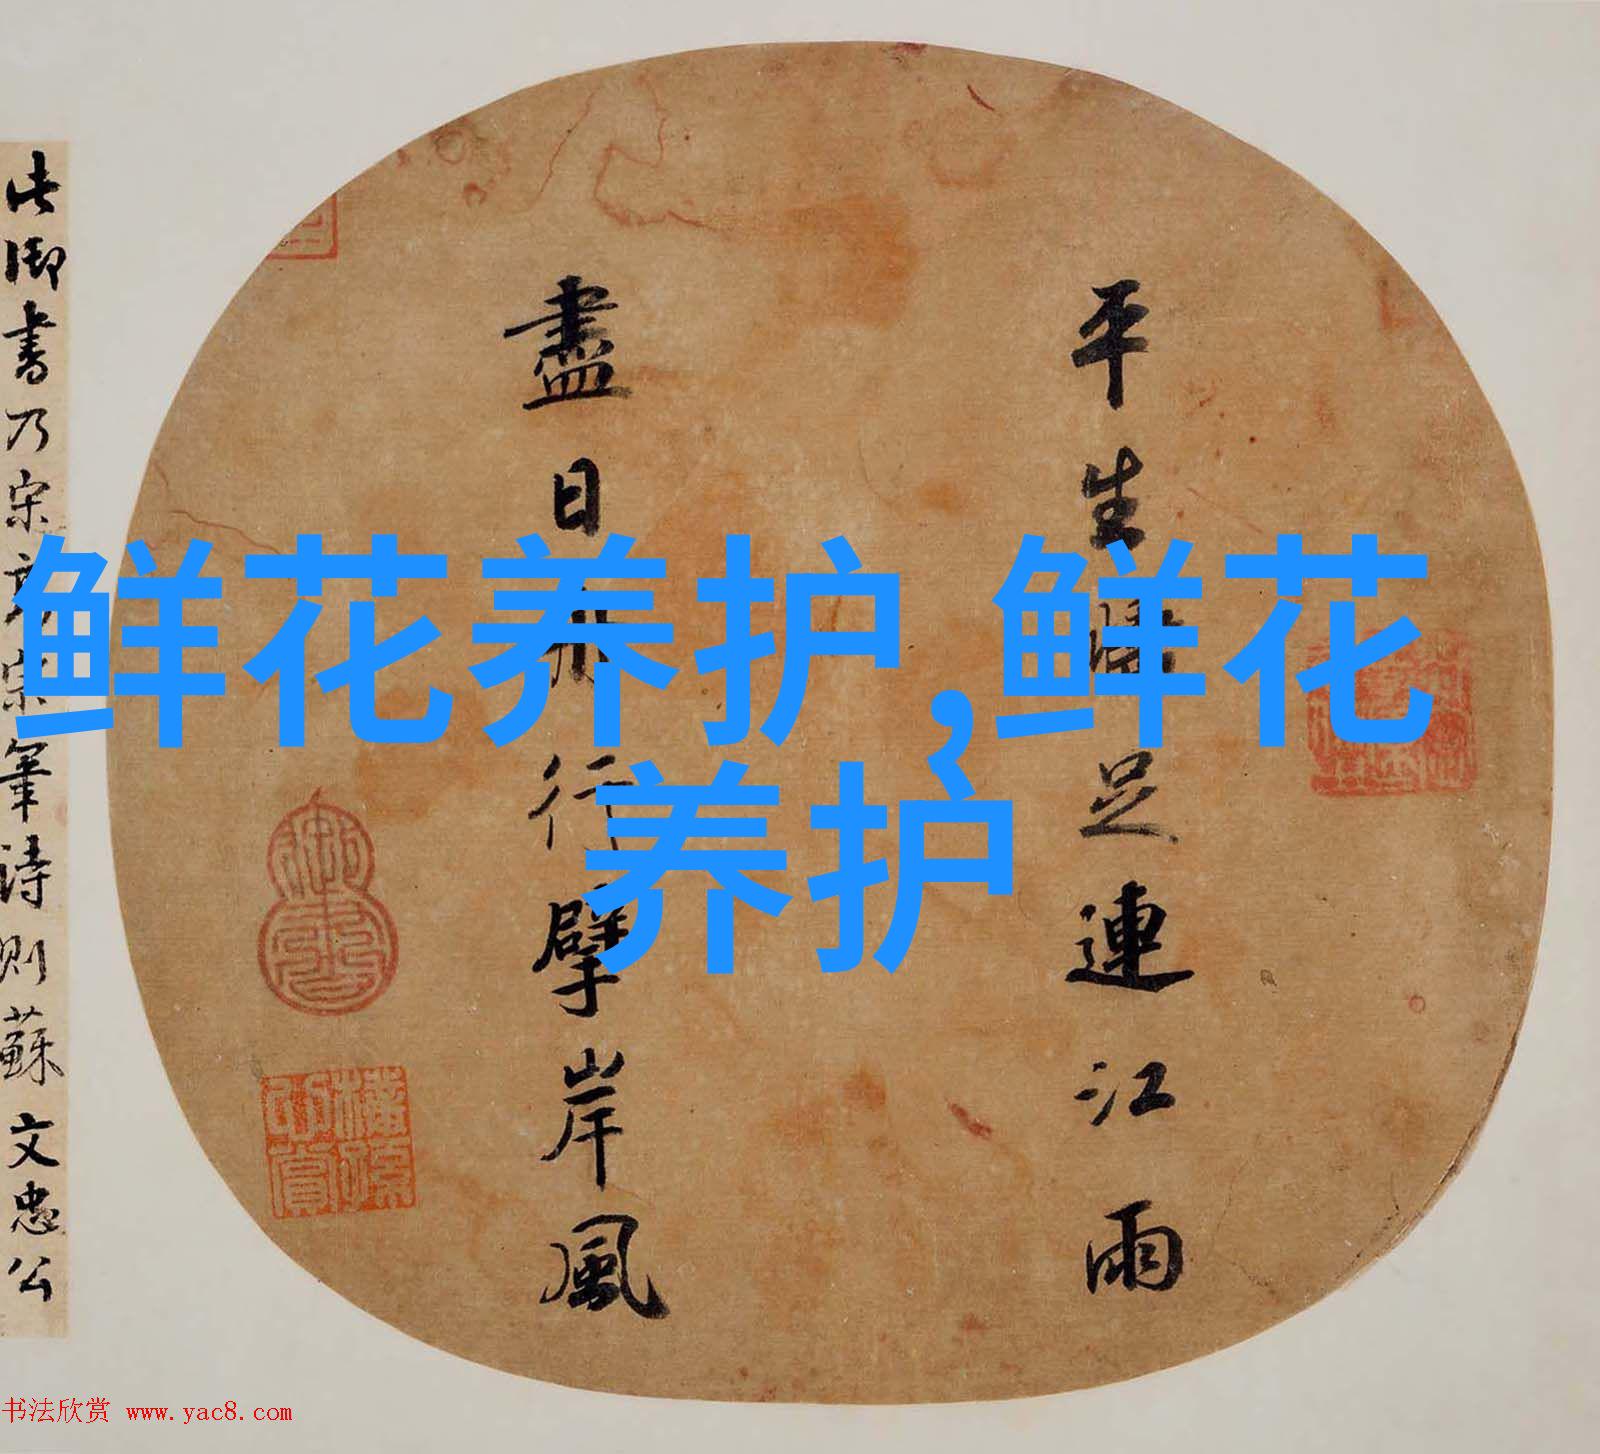 鲜花养护,鲜花
养护
平生足連江雨
盡日行擘岸風
此御書乃宋宗筆詩則蘇文忠公
书法欣赏 www.yac8.com